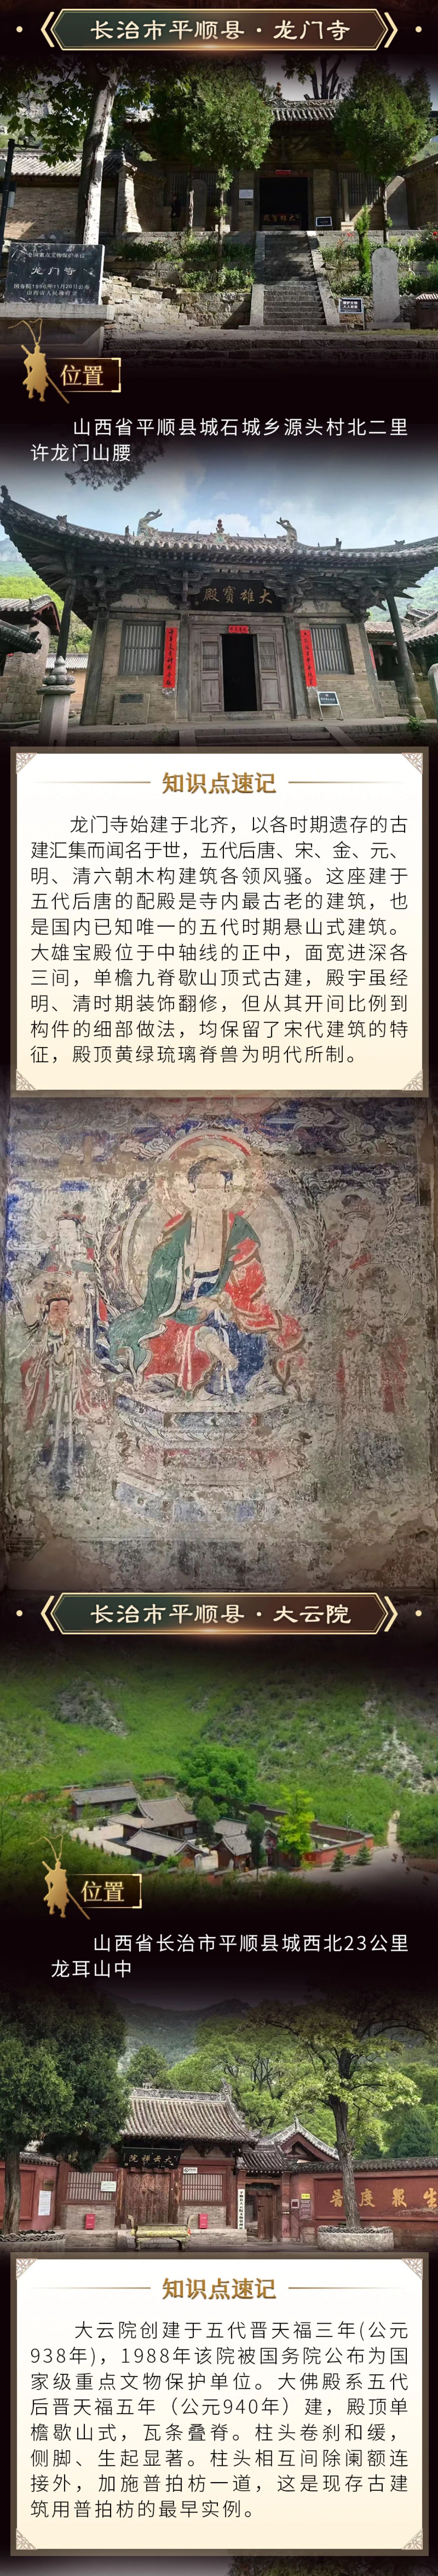 长治市平顺县·龙门寺
大雄宝殿
全国重点文物保护单位
龙门寺
国务院1996年11月20日公布
山西省人民政府立
位置
山西省平顺县城石城乡源头村北二里
许龙门山腰
大雄寶殿
知识点速记
龙门寺始建于北齐，以各时期遗存的古
建汇集而闻名于世，五代后唐、宋、金、元、
明、清六朝木构建筑各领风骚。这座建于
五代后唐的配殿是寺内最古老的建筑，也
是国内已知唯一的五代时期悬山式建筑。
大雄宝殿位于中轴线的正中，面宽进深各
三间，单檐九脊歇山顶式古建，殿宇虽经
明、清时期装饰翻修，但从其开间比例到
构件的细部做法，均保留了宋代建筑的特
征，殿顶黄绿琉璃脊兽为明代所制。
长治市平顺县·大云院
位置
山西省长治市平顺县城西北23公里
龙耳山中
大云禅院
普度眾生
知识点速记
大云院创建于五代晋天福三年(公元
938年)，1988年该院被国务院公布为国
家级重点文物保护单位。大佛殿系五代
后晋天福五年（公元940年）建，殿顶单
檐歇山式，瓦条叠脊。柱头卷刹和缓，
侧脚、生起显著。柱头相互间除阑额连
接外，加施普拍枋一道，这是现存古建
筑用普拍枋的最早实例。